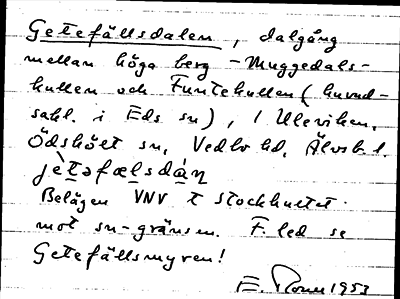 Getefällsdalen, dalgång
mellan höga berg – Muggedals-
kullen och Funtekullen (huvud-
sakl. i Eds sn), / Uleviken,
Ödskölt sn, Vedbo hd, Älvsb. l.
Belägen VNV t Stockhultet
mot sn-gränsen. F. led se
Getefällsmyren!
1953